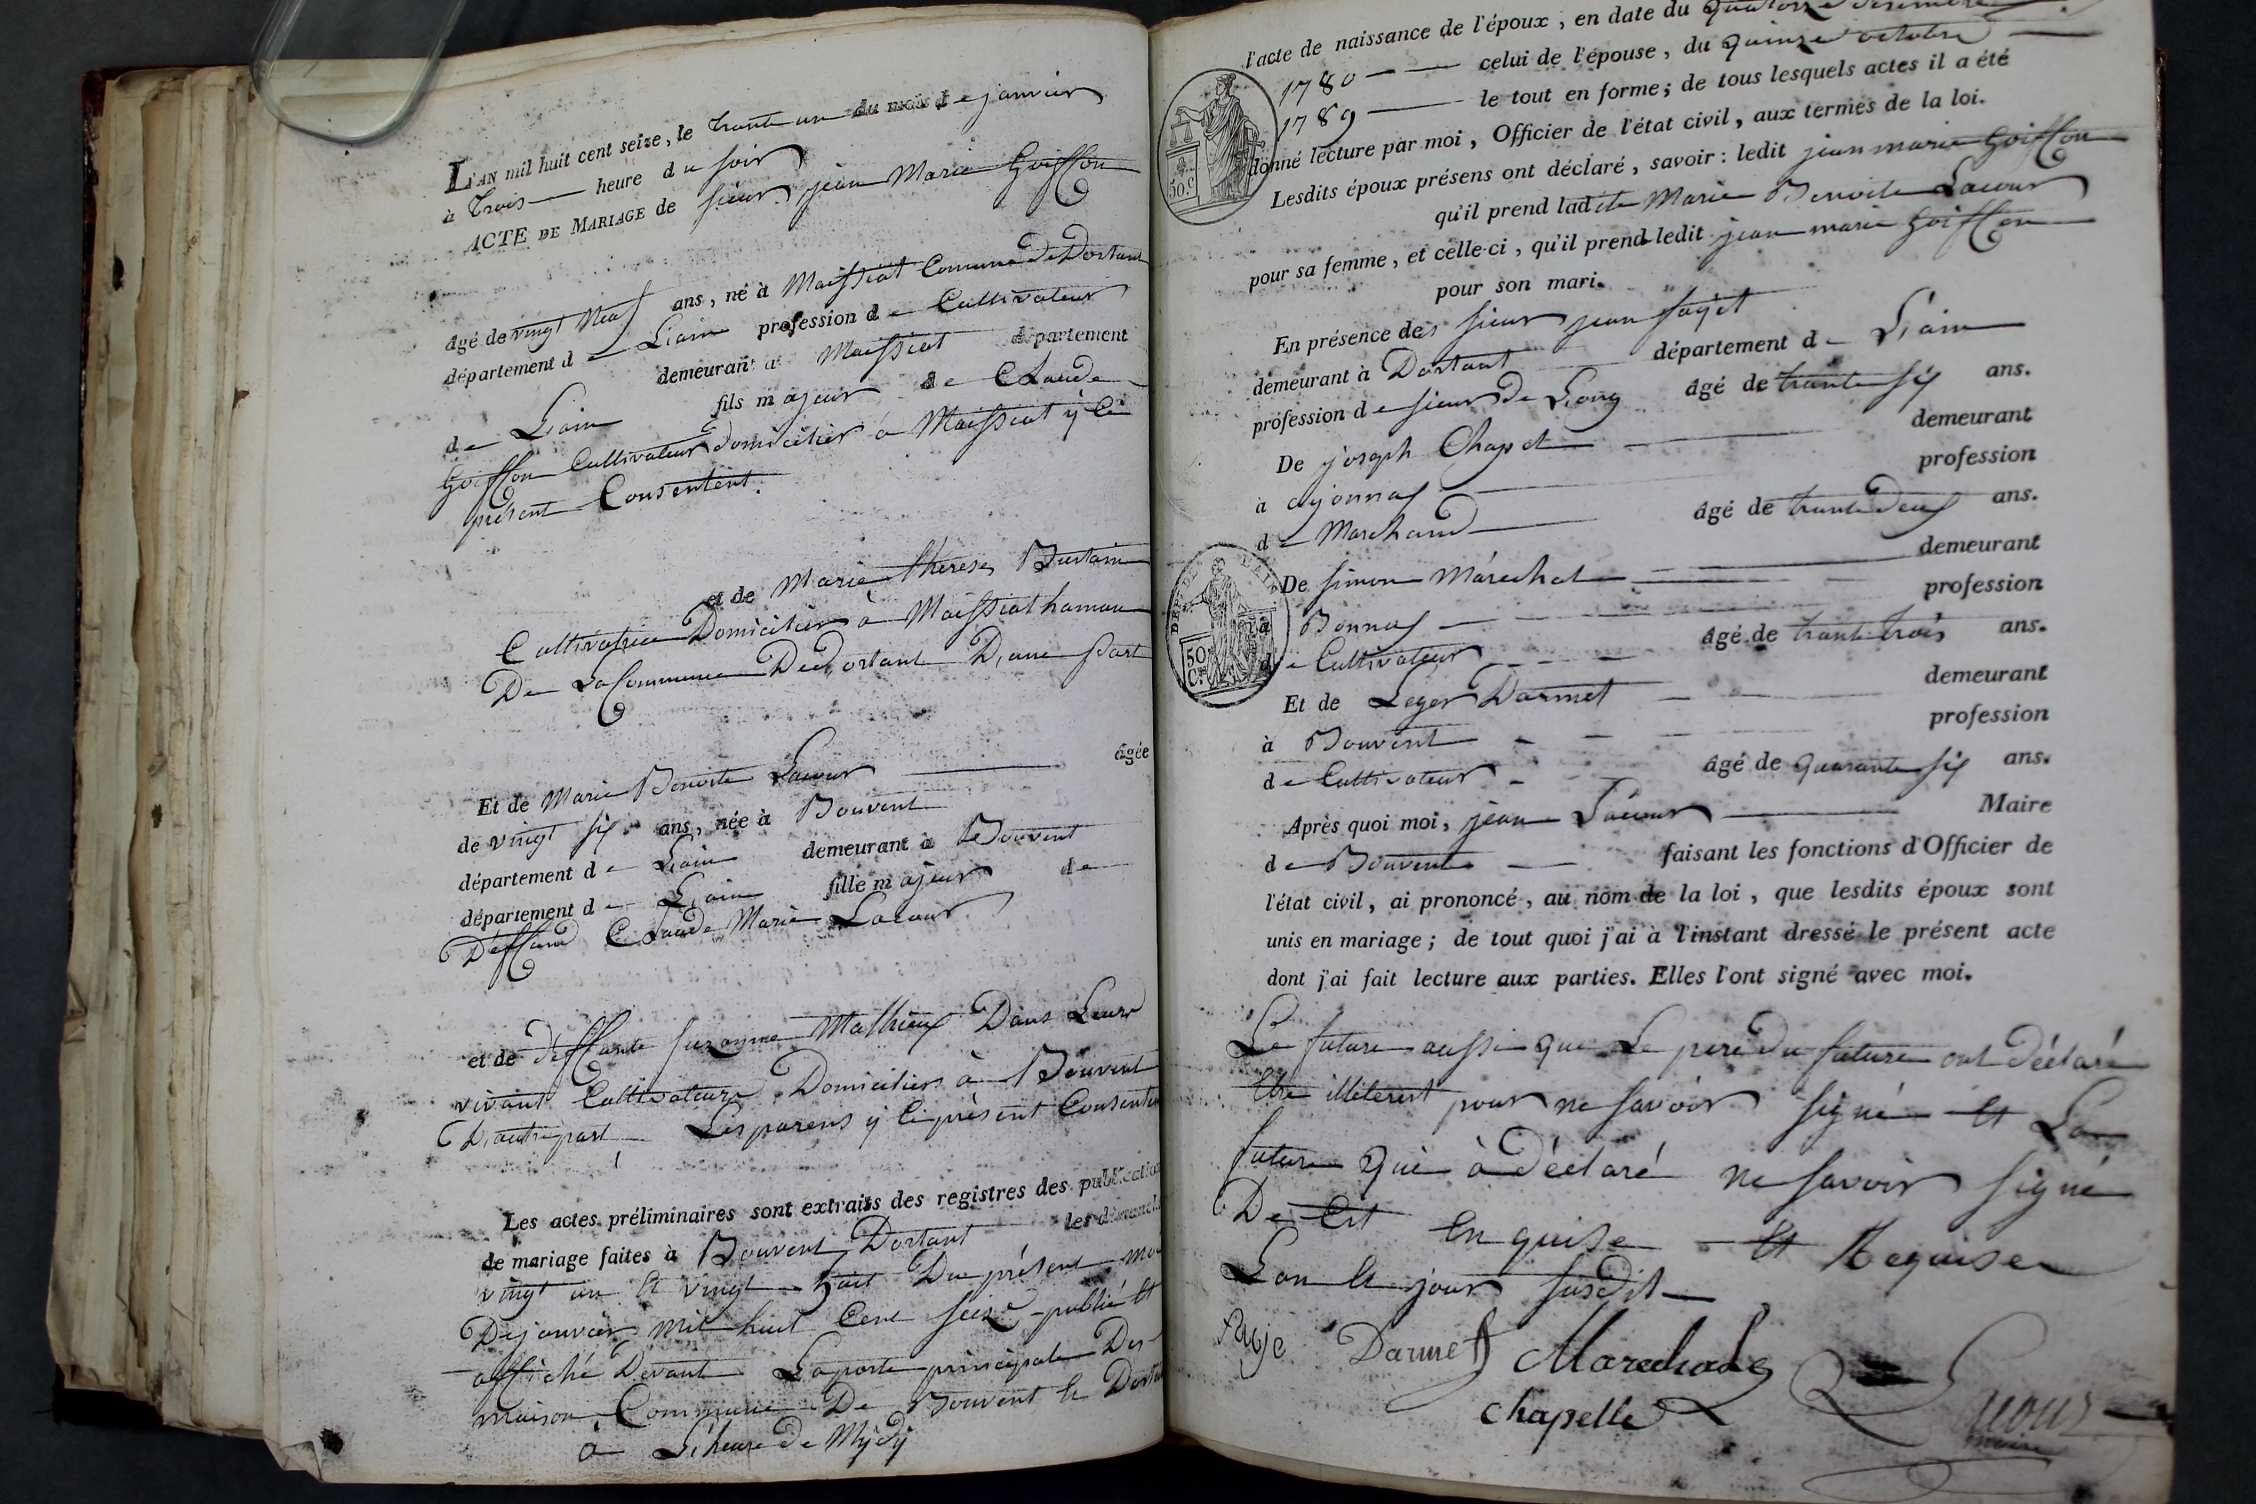 L'AN mil huit cent seize, le trante un du mois de janvier
à trois heure du soir
ACTE DE MARIAGE de sieur jean Marie Goiffon
âgé de vingt neuf ans, né à Maissiat Comune de Dortant
département de L'ain profession de Cultivateur
demeurant à Maissiat département
de L'ain fils majeur de Claude
Goiffon Cultivateur domicilier à Maissiat y Ci
présent Consentent.
et de Marie therese
Cultivatrice Domicilier à Maissiat hamau
De La Commune De Dortant D'une Part
Et de Marie Benoite Lacour âgée
de vingt six ans, née à Bouvent
département de L'ain demeurant à Bouvent
département de L'ain fille majeur de
Deffund Claude Marie Lacour
et de deffunte Suzanne Mathieux Dans Leurs
vivant Cultivateurs Domiciliers à Bouvent
D'autre part Les parens y Ci présent Consenten
Les actes préliminaires sont extraits des registres des publication
de mariage faites à Bouvent Dortant les dimanch
vingt un Et vingt huit Du présent mo
De janvier mil huit Cent seize publié Et
affiché Devant La porte principale Des
maison Commune De Bouvent Et Dortan
à L'heure de Mydy
l'acte de naissance de l'époux, en date du quatorze
1780 celui de l'épouse, du quinze octobre
1789 le tout en forme; de tous lesquels actes il a été
donné lecture par moi, Officier de l'état civil, aux termes de la loi.
50.C
Lesdits époux présens ont déclaré, savoir: ledit jean marie Goiffon
qu'il prend ladite Marie Benoite Lacour
pour sa femme, et celle-ci, qu'il prend ledit jean marie Goiffon
pour son mari.
En présence des sieur jean
demeurant à Dortant département de L'ain
profession de sieur De Long âgé de trante six ans.
De joseph Chapel demeurant
à oyonnax profession
de Marchand âgé de trante Deux ans.
De simon Maréchal demeurant
à Bonnas profession
50 C.
de Cultivateur âgé de trante trois ans.
Et de Leger Darmet demeurant
à Bouvent profession
de Cultivateur âgé de quarante six ans.
Après quoi moi, jean Lacour Maire
de Bouvent faisant les fonctions d'Officier de
l'état civil, ai prononcé, au nom de la loi, que lesdits époux sont
unis en mariage; de tout quoi j'ai à l'instant dressé le présent acte
dont j'ai fait lecture aux parties. Elles l'ont signé avec moi.
Le future aussi que Le pere du future ont déclaré
Etre illiterêt pour ne savoir signé Et La
future qui à déclaré ne savoir signé
De Cit En quise Et Requise
L'an Et jour susdit
Darmet Marechal
chapelle
maire